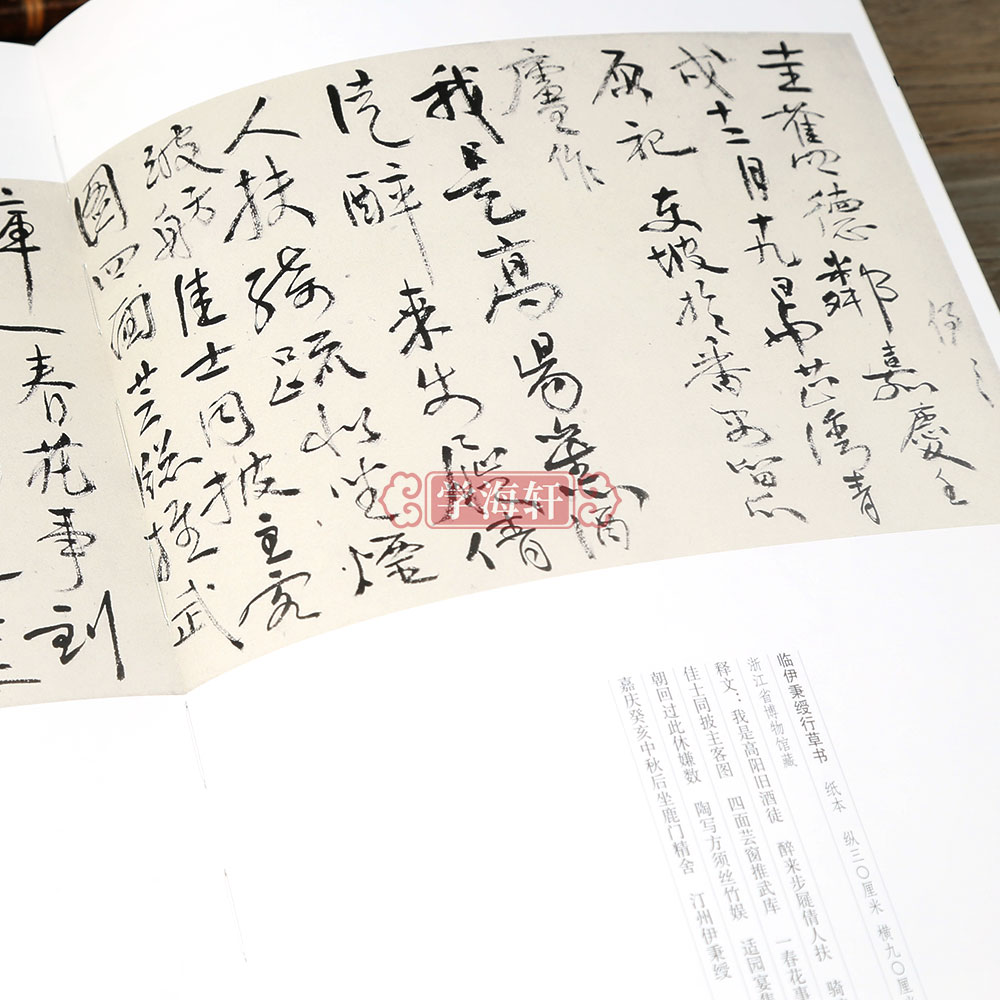 嘉慶壬
戌十二月十九日
芷灣青
記
東坡於番禺留
廬作
我是高陽舊酒
徒醉來步屧倩
人扶騎
似坐煙
波舫佳士同披主客
圖四面芸牕推武
庫一春花事到
学海轩
临伊秉绶行草书 纸本 纵三〇厘米 横九〇厘
浙江省博物馆藏
释文：我是高阳旧酒徒 醉来步屧倩人扶 骑
佳士同披主客图 四面芸窗推武库 一春花事
朝回过此休嫌数 陶写方须丝竹娱 适园宴
嘉庆癸亥中秋后坐鹿门精舍 汀州伊秉绶